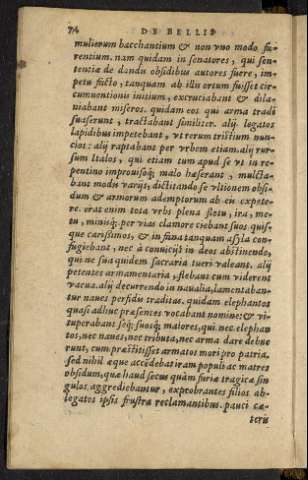 74 DE BELLIS
mulierum bacchantium & non vno modo fu-
rentium. nam quidam in senatores, qui sen-
tentiæ de dandis obsidibus autores fuere, im-
petu facto, tanquam ab illis ortum fuisset cir-
cumuentionis initium, excruciabant & dila-
niabant miseros. quidam eos qui arma tradi
suaserunt, tractabant similiter. alij legatos
lapidibus impetebant, vt rerum tristium nun-
cios: alij raptabant per vrbem etiam. alij rur-
sum Italos, qui etiam tum apud se vt in re-
pentino improuisoq; malo hæserant, mulcta-
bant modis varijs, dictitando se vltionem obsi-
dum & armorum ademptorum ab eis expete-
re. erat enim tota vrbs plena fletu, ira, me-
tu, minisq; per vias clamore ciebant suos quis-
que carissimos, & in fana tanquam asyla con-
fugiebant, nec à conuicijs in deos abstinendo,
qui ne sua quidem sacraria tueri valeant. alij
petentes armamentaria, flebant cum viderent
vacua. alij decurrendo in naualia, lamentaban-
tur naues perfidis traditas. quidam elephantos
quasi adhuc præsentes vocabant nomine: & vi-
tuperabant seq; suosq; maiores, qui nec elephan
tos, nec naues, nec tributa, nec arma dare debue
runt, cum præstitisset armatos mori pro patria.
sed nihil æque accedebat iram populi ac matres
obsidum, quæ haud secus quàm furiæ tragicæ sin
gulos aggrediebantur, exprobrantes filios ab-
legatos ipsis frustra reclamantibus. pauci cæ-
teris